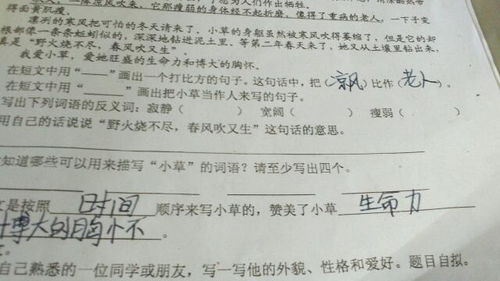 得面黄肌瘦。
凛冽的寒风把可怕的冬天请来了，小草的身躯虽然被寒风吹得萎缩了，但是它的却
根都像一条条蚯蚓似的，深深地钻进泥土里、等第二年春天来了，她又从土壤里钻出来，
真是“野火烧不尽，春风吹又生”！
我爱小草，爱她旺盛的生命力和博大的胸怀。
在短文中用“——”画出一个打比方的句子。这句话中，把（凉风）比作（老人）。
在短文中用“”画出把小草当作人来写的句子。
写出下列词语的反义词：寂静（ ） 宽阔（ ） 瘦弱（ ）
用自己的话说说“野火烧不尽，春风吹又生”这句话的意思。
知道哪些可以用来描写“小草”的词语？请至少写出四个。
是按照 时间 顺序来写小草的，赞美了小草 生命力
博大的胸怀。
自己熟悉的一位同学或朋友，写一写他的外貌、性格和爱好。题目自拟。